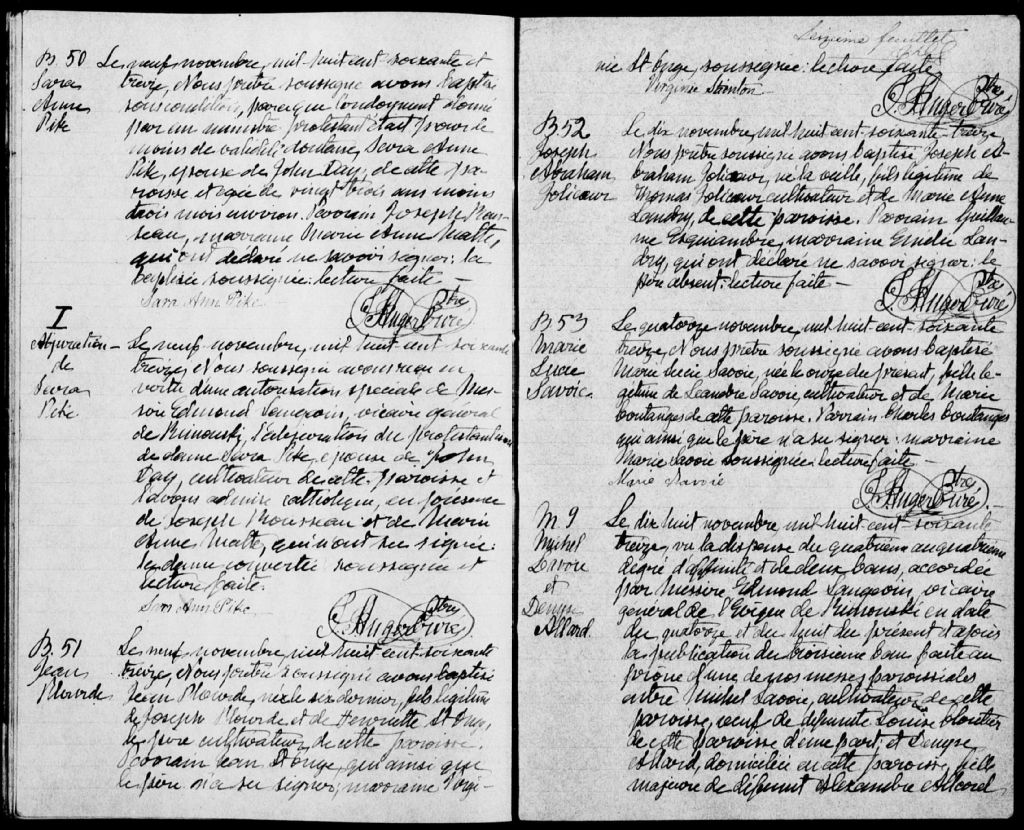 B. 50
Sara
Anne
Pike
Le neuf novembre, mil huit cent soixante et
treize, Nous prêtre soussigné avons baptisé
sous condition, parce que l'ondoyment donné
par un ministre protestant était pour le
moins de validité douteuse, Sera Anne
Pike, epouse de John Day, de cette pa-
roisse et agée de vingt trois ans moins
trois mois environ. Parrain Joseph Rous-
seau, marraine Marie Anne Matte,
qui ont déclaré ne savoir signer: la
baptisée soussignée: lecture faite —
Sara Ann Pike
J. Auger Ptre Curé
I
Abjuration
de
Sera
Pike
Le neuf novembre, mil huit cent soixante
treize, Nous soussigné avons reçu en
vertu d'une autorisation spéciale de Mes-
sire Edmond Langevin, vicaire general
de Rimouski, l'abjuration du protestantisme
de dame Sera Pike, epouse de John
Day, cultivateur de cette paroisse et
l'avons admise catholique, en présence
de Joseph Rousseau et de Marie
Anne Matte, qui n'ont su signer:
la dame convertie soussignée et
lecture faite.
Sara Ann Pike
J. Auger Ptre Curé
B. 51
Jean
Plourde
Le neuf novembre, mil huit cent soixante
treize, Nous prêtre soussigné avons baptisé
Jean Plourde, né le six dernier, fils légitime
de Joseph Plourde et de Henriette St Onge,
le père cultivateur de cette paroisse.
Parrain Jean St Onge, qui ainsi que
le père n'a su signer, marraine Virgi-
feuillet
nie St Onge, soussignée: lecture faite
Virginie
J. Auger Ptre Curé
B 52
Joseph
Abraham
Jolicœur
Le dix novembre, mil huit cent soixante treize
Nous prêtre soussigné avons baptisé Joseph A-
braham Jolicœur, né la veille, fils légitime de
Thomas Jolicœur cultivateur et de Marie Anne
Landry, de cette paroisse. Parrain Guillau-
me Esquiambre, marraine Emélie Lan-
dry, qui ont déclaré ne savoir signer: le
père absent: lecture faite —
J. Auger Ptre Curé
B 53
Marie
Lucie
Savoie
Le quatorze novembre, mil huit cent soixante
treize, Nous prêtre soussigné avons baptisé
Marie Lucie Savoie, née le onze du présent, fille lé-
gitime de Léandre Savoie, cultivateur et de Marie
Boulanger de cette paroisse. Parrain Charles Boulanger
qui ainsi que le père n'a su signer: marraine
Marie Savoie soussignée: lecture faite —
Marie Savoie
J. Auger Ptre Curé
M 9
Michel
Savoie
et
Denyse
Allard
Le dix huit novembre, mil huit cent soixante
treize, vu la dispense du quatrième au quatrième
degré d'affinité et de deux bans, accordée
par Messire Edmond Langevin, vicaire
général de l'Evêque de Rimouski en date
du quatorze et du huit du présent, d'après
la publication du troisième ban faite au
prône d'une de nos messes paroissiales
entre Michel Savoie, cultivateur de cette
paroisse, veuf de défunte Louise Cloutier
de cette paroisse d'une part; et Denyse
Allard, domiciliée en cette paroisse, fille
majeure de défunt Alexandre Allard